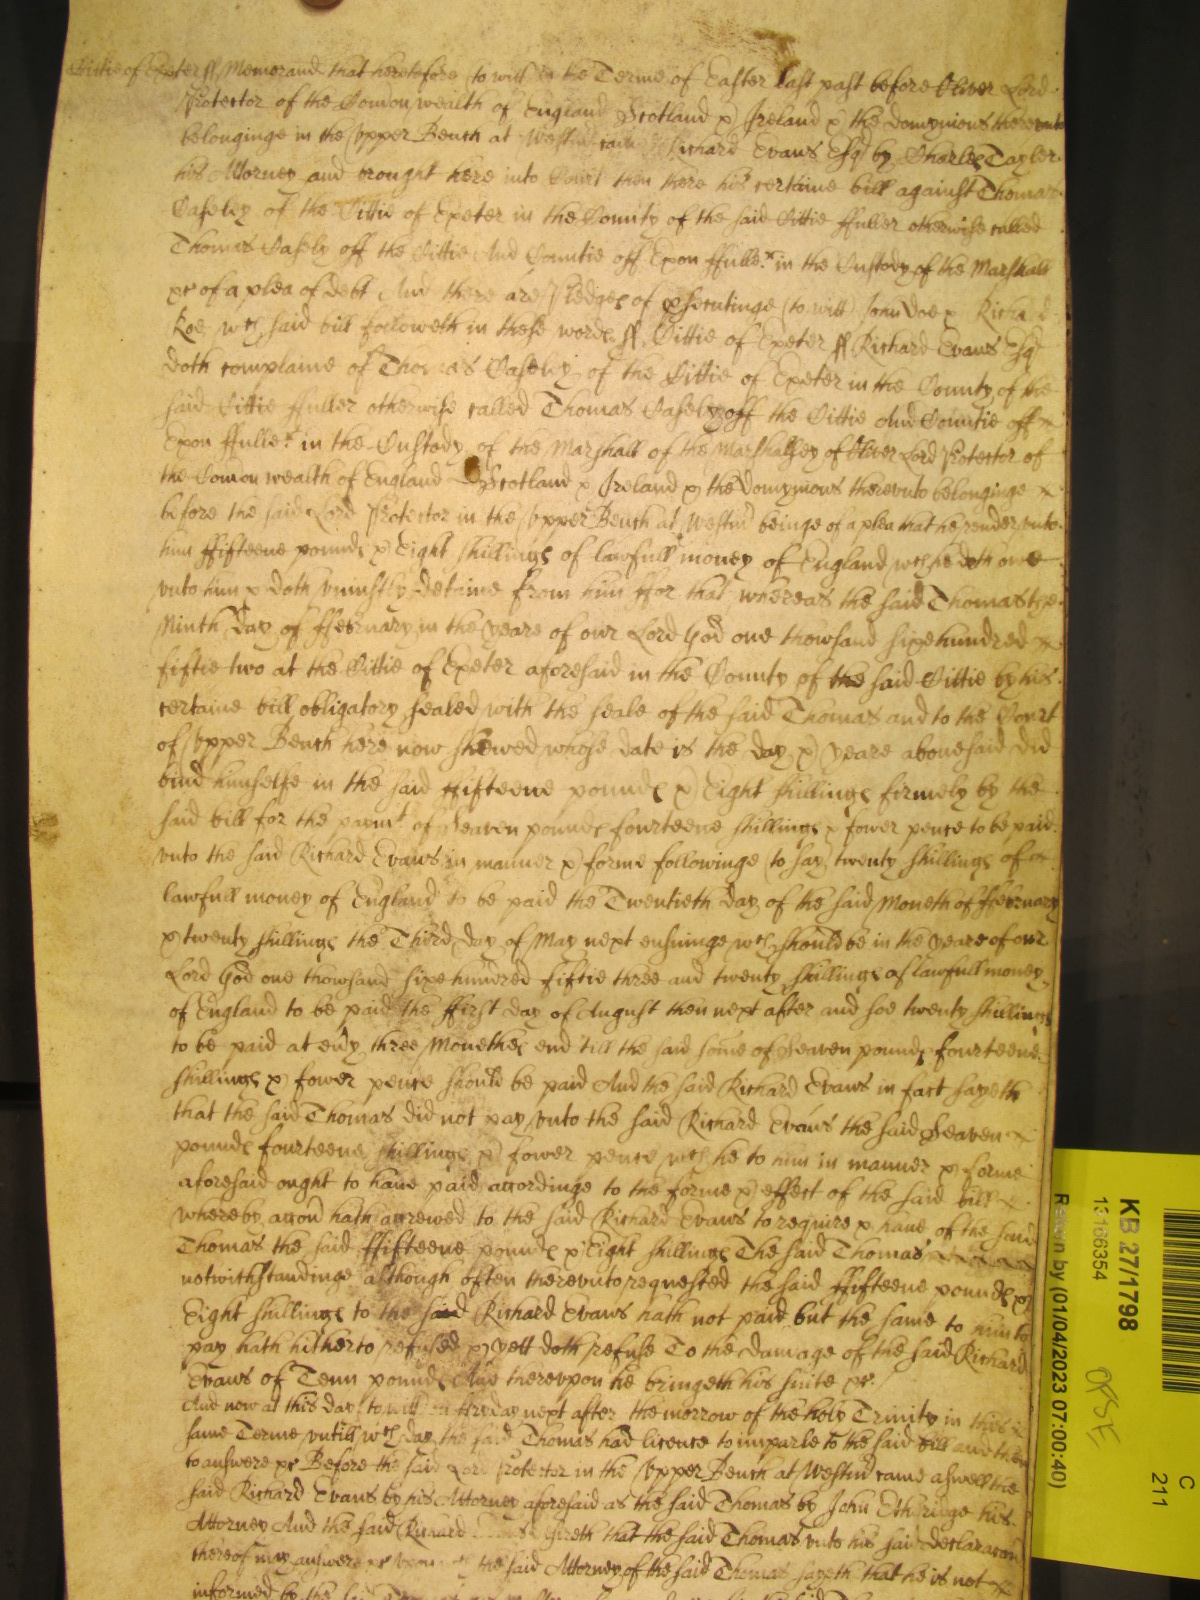 Cittie of Exeter ss Memorand that heretofore (to witt) in the Terme of Easter last past before Oliver Lord
Protector of the Comon wealth of England Scotland & Ireland & the domynions therevnto
belonginge in the Vpper Bench at Westm came Richard Evans Esq by Charles Tayler
his Attorney and brought here into Court then there his certaine bill against Thomas
Casely of the Cittie of Exeter in the County of the said Cittie ffuller otherwise called
Thomas Casely off the Cittie And Countie off Exon ffuller in the Custody of the Marshall
&c of a plea of debt And there are pledges of psecutinge (to witt) John Doe & Richard
Roe wch said bill followeth in these words ss Cittie of Exeter ss Richard Evans Esq
doth complaine of Thomas Casely of the Cittie of Exeter in the County of the
said Cittie ffuller otherwise called Thomas Casely off the Cittie And Countie off
Exon ffuller in the Custody of the Marshall of the Marshallsey of Oliver Lord Protector of
the Comon wealth of England Scotland & Ireland & the domynions therevnto belonginge
before the said Lord Protector in the Vpper Bench at Westm beinge of a plea that he render vnto
him ffifteene pounds & Eight shillings of lawfull money of England wch he doth owe
vnto him & doth vniustly detaine from him ffor that whereas the said Thomas the
Ninth day of ffebruary in the yeare of our Lord God one thowsand sixe hundred
fiftie two at the Cittie of Exeter aforesaid in the County of the said Cittie by his
certaine bill obligatory sealed with the seale of the said Thomas and to the Court
of Vpper Bench here now shewed whose date is the day & yeare abovesaid did
bind himselfe in the said ffifteene pounds & Eight shillings firmely by the
said bill for the paymt of Seaven pounds fourteene shillings & fower pence to be paid
vnto the said Richard Evans in manner & forme followinge (to say) twenty shillings of
lawfull money of England to be paid the Twentieth day of the said Moneth of ffebruary
& twenty shillings the Third day of May next ensuinge wch should be in the yeare of our
Lord God one thowsand sixe hundred fiftie three and twenty shillings of lawfull money
of England to be paid the ffirst day of August then next after and soe twenty shillings
to be paid at eu'y three Monethes end till the said some of Seaven pounds fourteene
shillings & fower pence should be paid And the said Richard Evans in fact sayeth
that the said Thomas did not pay vnto the said Richard Evans the said Seaven
pounds fourteene shillings & fower pence wch he to him in manner & forme
aforesaid ought to haue paid accordinge to the forme & effect of the said bill
whereby accon hath accrewed to the said Richard Evans to require & haue of the said
Thomas the said ffifteene pounds & Eight shillings The said Thomas
notwithstandinge although often therevnto requested the said ffifteene pounds &
Eight shillings to the said Richard Evans hath not paid but the same to him to
pay hath hitherto refused & yett doth refuse To the damage of the said Richard
Evans of Tenn pounds And therevpon he bringeth his suite &c
And now at this day (to witt) ffryday next after the morrow of the holy Trinity in this
same Terme vntill wch day the said Thomas had licence to imparle to the said bill and then
to answere &c Before the said Lord Protector in the Vpper Bench at Westm came aswell the
said Richard Evans by his Attorney aforesaid as the said Thomas by John Etheridge his
Attorney And the said Richard that the said Thomas vnto his said declaracon
thereof may answere &c the said Attorney of the said Thomas sayeth that he is not
informed by the said
KB 27/1798
13166354
Return by (01/04/2023 07:00:40)
C
211